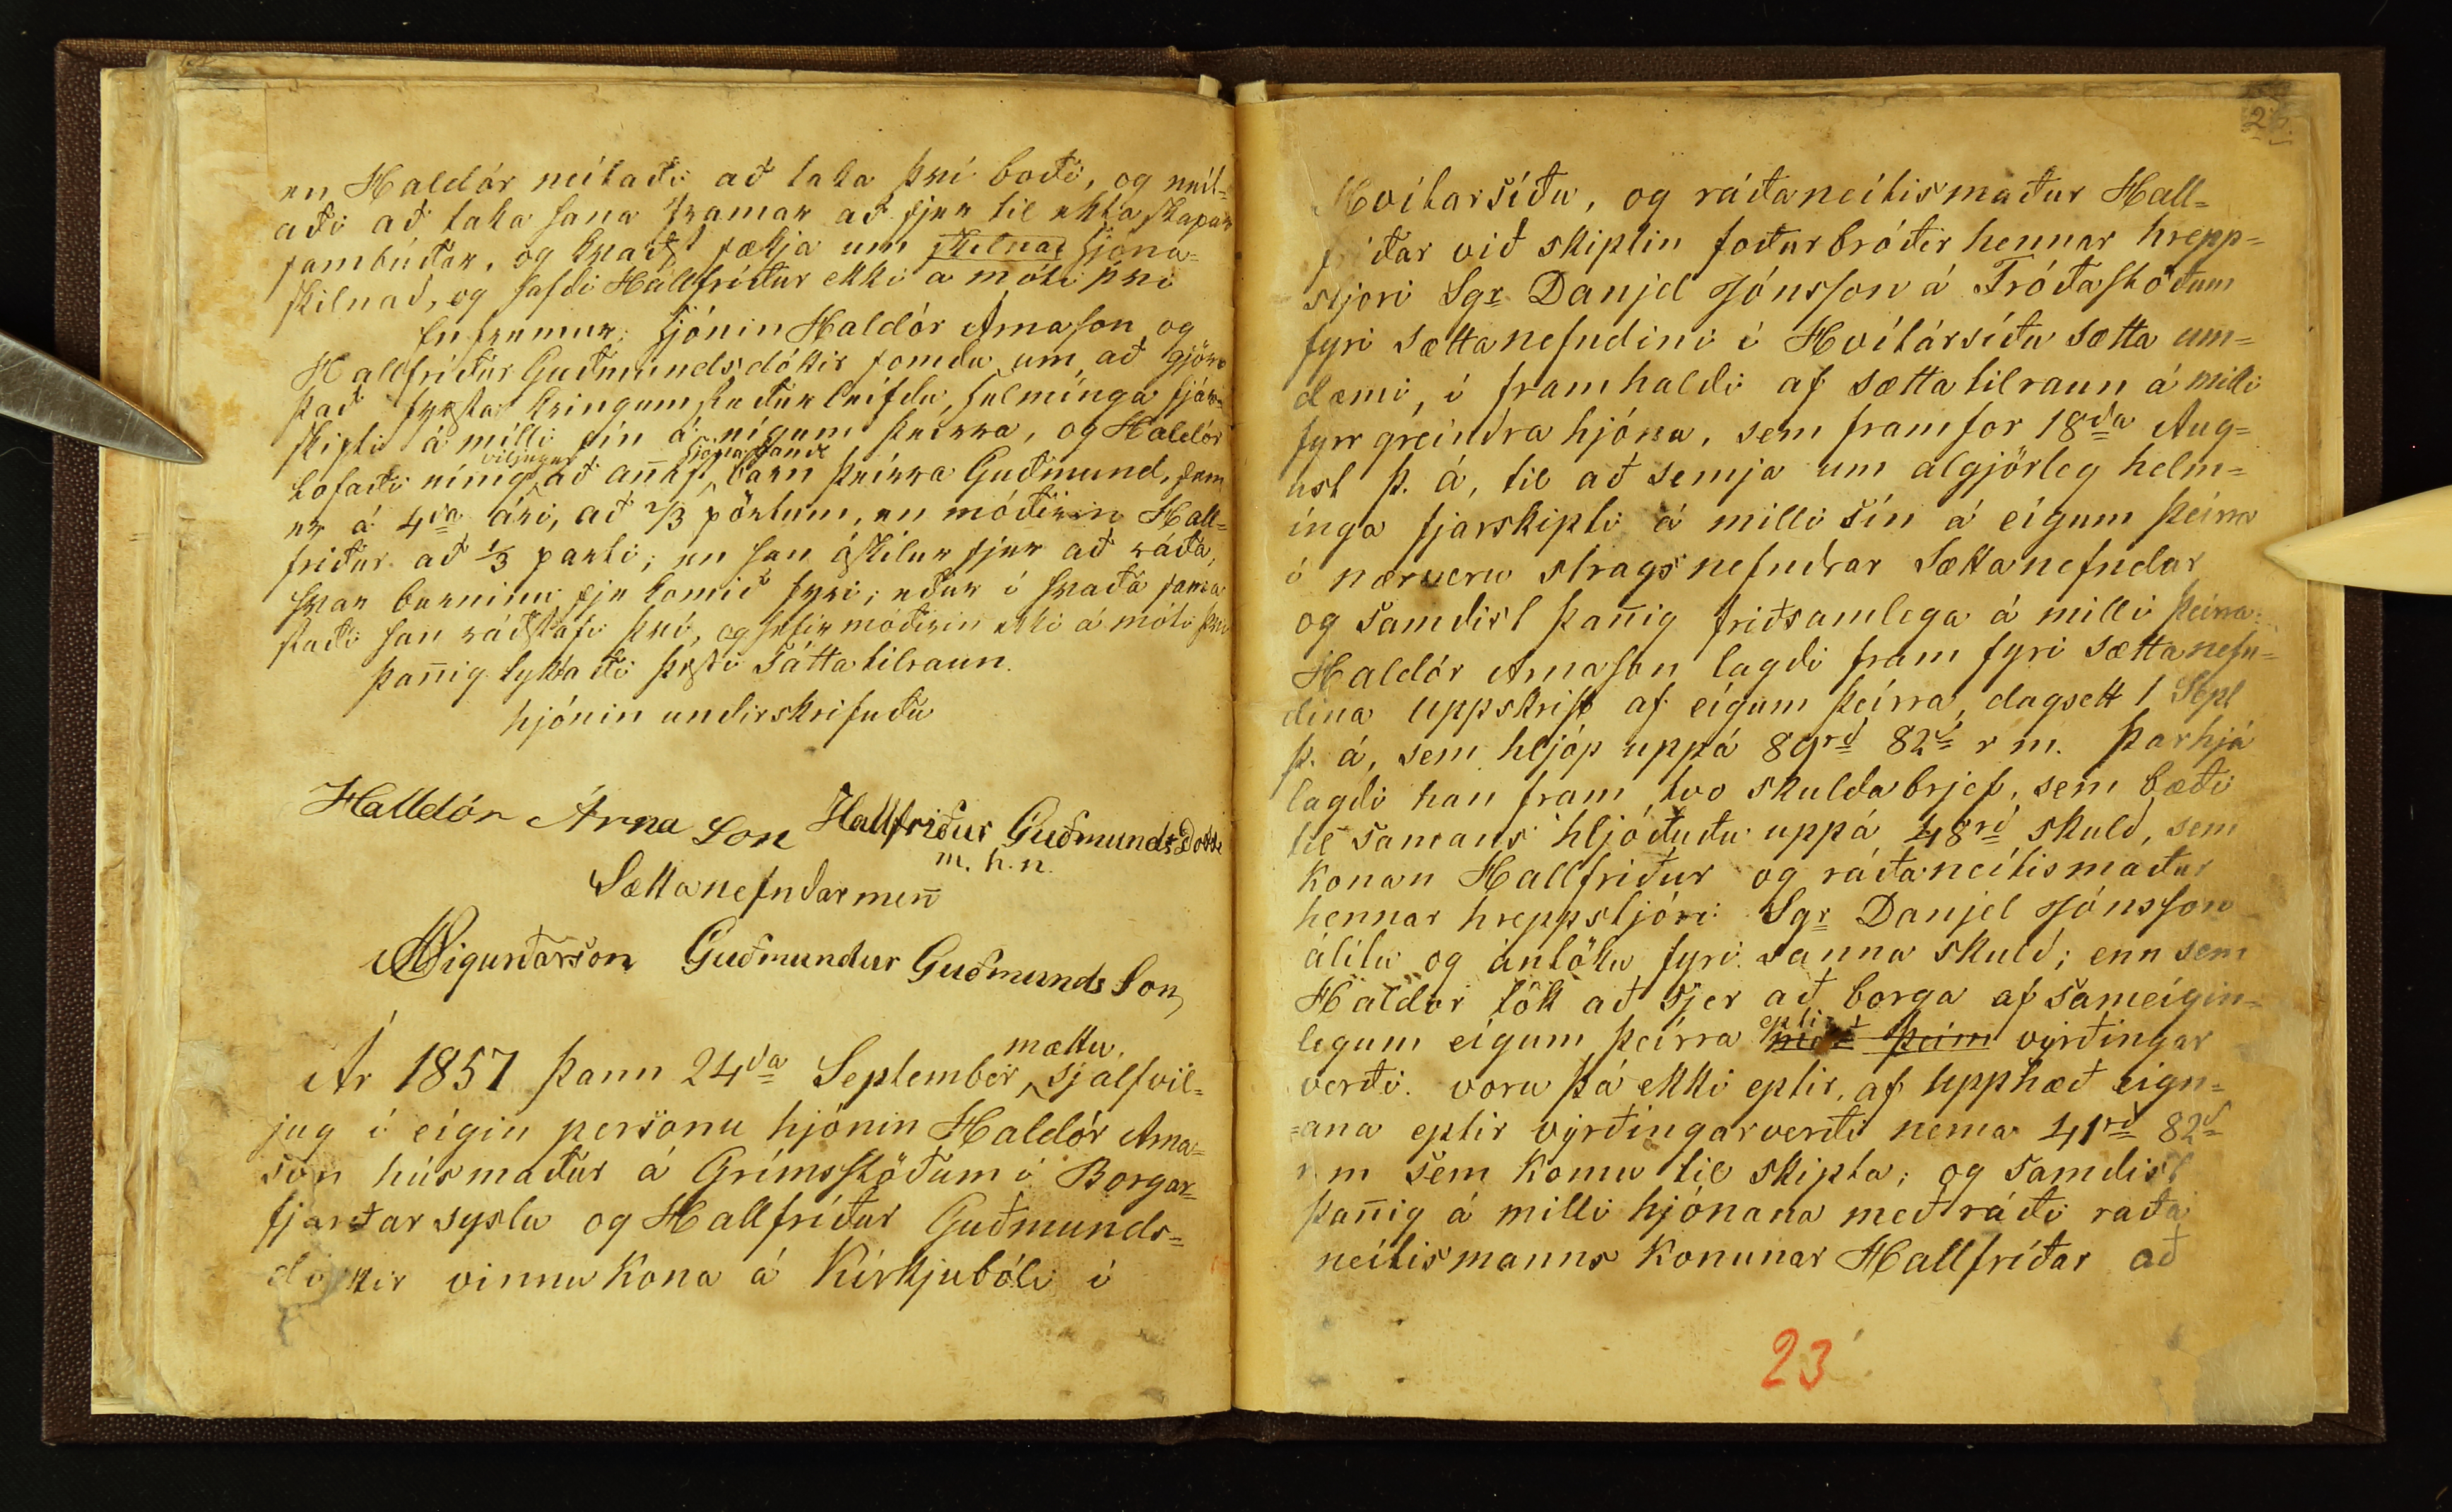 en Haldór neítaði að taka því boði, og neít-
aði að taka hana framar að sjer til ektaskapar
sambúðar, og kvaðst sækja um skilnað hjóna-
skilnað, og hafdi Hallfríður ekki á móti því
Enfremur; hjónin Haldór Arnason og
Hallfríður Guðmundsdóttir somdu um að gjöra
það fyrsta kringumstæður leífdu, helmínga fjár-
skipti á milli sín á eígum þeírra, og Haldór
viljugur hjonabands
lofaði eínig að añast barn þeírra Guðmund, sem
er á 4ða ári, að 2/3 pörtum, en móðirin Hall-
friður að 1/3 parti; en han áskilur sjer að ráða,
hvar barninu sje komið fyri; eður í hvaða sama
stað han ráðstafi því, og hefir móðirin ekki á móti því
Þañig lyktaði þessi Sáttatilraun.
hjónin undirskrifuðu
Halldór Árna Son Hallfriður Guðmundsdotti
m. h. n.
Sættanefndarmeñ
Sigurðarson Guðmundur Guðmunds Son
mættu
Ár 1857 þann 24ða September sjalfvil-
jug í eígin personu hjónin Haldór Arna-
son húsmaður á Grímsstöðum í Borgar-
fjarðarsyslu og Hallfríður Guðmunds-
dóttir vinnukona á Kirkjubóli í
Hvítarsíðu, og ráðaneítismaður Hall-
fríðar við skiptin foðurbróðir hennar hrepp-
stjori Sgr Danjel Jónsson á Fróðastoðum
fyri sættanefndini í Hvítársíðu sætta um-
dæmi, í framhaldi af sættatilraun á milli
fyrr greindra hjóna, sem framfor 18ða Aug-
ust þ. á, til að semja um algjörleg helm-
ínga fjarskipti á milli sín á eígum þeírra
í nærveru strags nefndrar Sættanefndar
og Samdist þañig friðsamlega á milli þeírra:
Haldór Arnason lagdi fram fyri sættanefn-
dina uppskrift af eígum þeírra, dagsett 1 Sept
þ. á, sem hljóp uppá 89rð 82s r m. Þarhjá
lagdi han fram tvo skuldabrjef, sem bæði
til samans hljóðuðu uppá 48rð skuld, sem
konan Hallfriður og ráðaneítismaður
hennar hreppstjóri Sgr Danjel Jónsson
álitu og ántöku fyri sanna skuld; enn sem
Haldór tók að sjer að borga af sameígin-
eptir
legum eígum þeírra með þeim vyrðingar
verði. voru þá ekki eptir, af Upphæð eign-
ana eptir vyrðíngarverði nema 41rð 82s
r m sem komu til skipta; og samdist
þañig á milli hjónana með ráði raða
neítismanns konunar Hallfríðar að
23